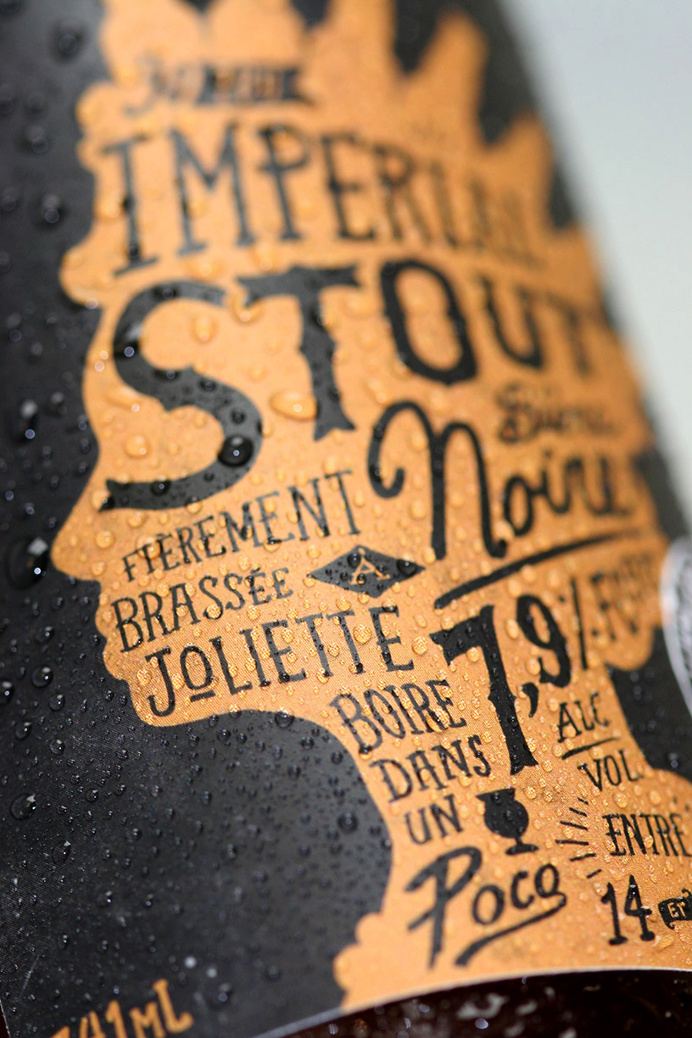 IMPERIAL
STOUT
Bière
Noire
FIÈREMENT
BRASSÉE A
JOLIETTE
7,9%
ALC
VOL.
BOIRE
DANS
UN
Poco
ENTRE
14 ET
341ML